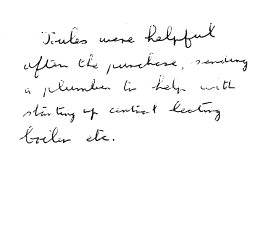 Toules were helpful
after the purchase, sending
a plumber to help with
starting up central heating
boiler etc.